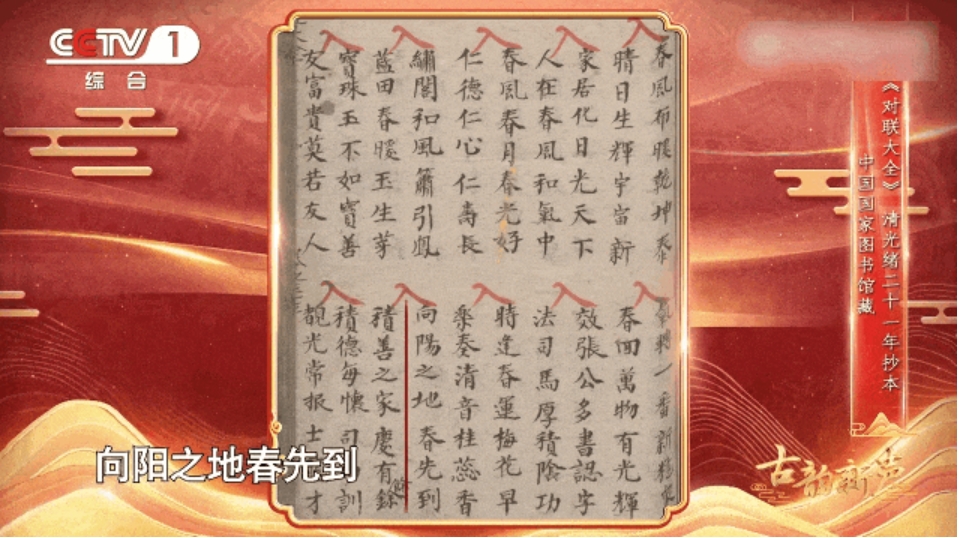 CCTV 1
综合
《对联大全》 清光绪二十一年抄本
中国国家图书馆藏
春風布暖乾坤泰
晴日生輝宇宙新
家居化日光天下
人在春風和氣中
春風春月春光好
仁德仁心仁壽長
繡閣和風簫引鳳
藍田春暖玉生芽
寶珠玉不如寶善
友富貴莫若友人
轉一番新
春回萬物有光輝
效張公多書認字
法司馬厚積陰功
時逢春運梅花早
樂奏清音桂蕊香
向陽之地春先到
積善之家慶有餘
積德每懷司訓
光常报士才
向阳之地春先到
古韵新声